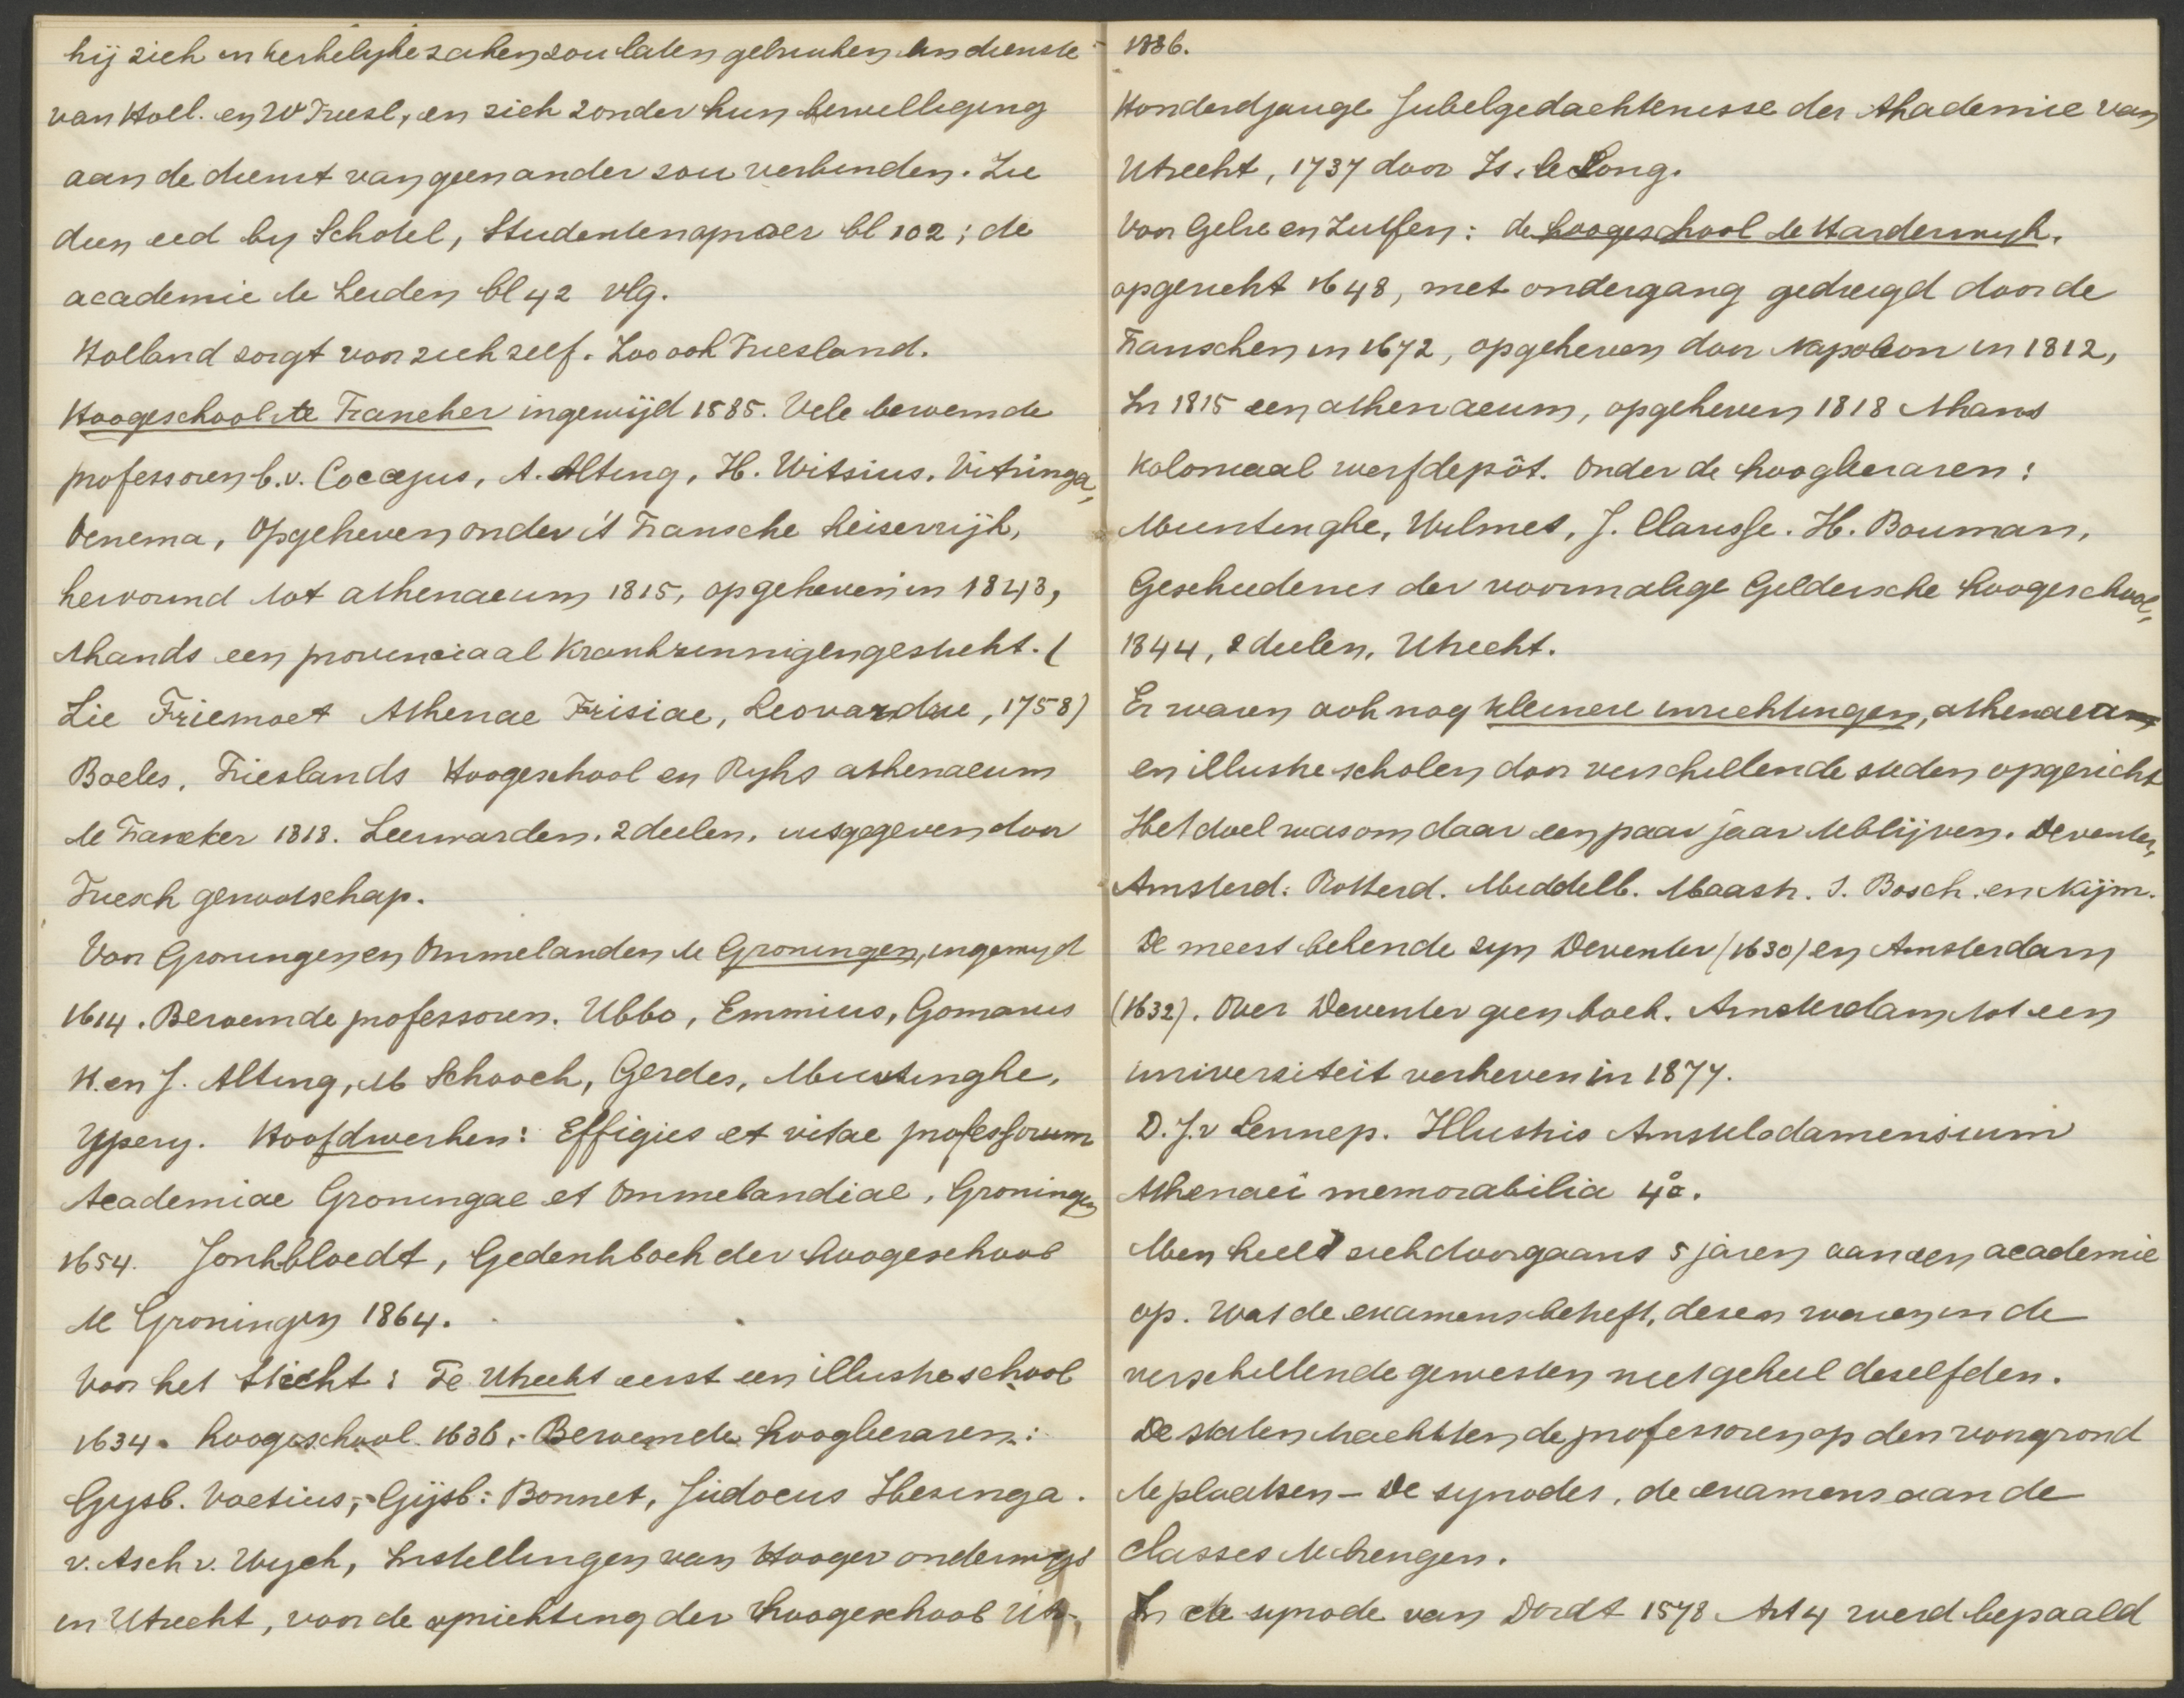 hij zich in kerkelijke zaken zou laten gebruiken ten dienste
van Holl. en W Friesl, en zich zonder hun bewilliging
aan de dienst van geen ander zou verbinden. Zie
dien eed by Schotel, Studentenoproer bl 102; de
academie te Leiden bl 42 vlg.
Holland zorgt voor zich zelf. Zoo ook Friesland.
Hoogeschool te Franeker ingewijd 1585. Vele beroemde
professoren b.v. Coccejus, A. Alting, H. Witsius, Vitringa,
Venema, Opgeheven onder 't Fransche keiserrijk,
hervormd tot athenaeum 1815, opgeheven in 1843,
thands een provinciaal krankzinnigengesticht. (
Zie Friemoet Athenae Frisiae, Leovardiae, 1758)
Boeles, Frieslands Hoogeschool en Ryks athenaeum
te Franeker 1818. Leeuwarden. 2 deelen, uitgegeven door
Friesch genootschap.
Voor Groningen en Ommelanden te Groningen, ingewyd
1614. Beroemde professoren. Ubbo, Emmius, Gomarus
H. en J. Alting, M Schoock, Gerdes, Muntinghe,
Ypeny. Hoofdwerken: Effigies et vitae professorum
Academiae Groningae et Ommelandiae, Groningen
1654. Jonkbloedt, Gedenkboek der hoogeschool
te Groningen 1864.
Voor het Sticht: Te Utrecht eerst een illustre school
1634. hoogeschool 1636, Beroemde hoogleraren:
Gysb. Voetius, Gijsb: Bonnet, Judocus Hesinga.
v. Asch v. Wyck, Instellingen van Hooger onderwijs
in Utrecht, voor de oprichting der hoogeschool Utr.,
1886.
Honderdjange Jubelgedachtenisse der Akademie van
Utrecht, 1737 door Is. le Long.
Voor Gelre en Zutfen: de hoogeschool te Harderwyk,
opgericht 1648, met ondergang gedreigd door de
Franschen in 1672, opgeheven door Napoleon in 1812,
In 1815 een athenaeum, opgeheven 1818 thans
Koloniaal werfdepôt. Onder de hoogleraren:
Muntinghe, Wilmet, J. Clarisse. H. Bouman,
Geschiedenis der voormalige Geldersche hoogeschool,
1844, 2 deelen, Utrecht.
Er waren ook nog kleinere inrichtingen, athenaea
en illustre scholen door verschillende steden opgericht
Het doel was om daar een paar jaar te blijven. Deventer,
Amsterd. Rotterd. Middelb. Maastr. S. Bosch. en Nijm.
De meest bekende zyn Deventer (1630) en Amsterdam
(1632). Over Deventer geen boek. Amsterdam tot een
universiteit verheven in 1877.
D. J. v Lennep. Illustris Amstelodamensium
Athenaei memorabilia 4o.
Men hield zich doorgaans 5 jaren aan een academie
op. Wat de examens betreft, dezen waren in de
verschillende gewesten niet geheel deselfden.
De staten trachtten de professoren op den voorgrond
te plaatsen – De synodes, de examens aan de
classes te brengen.
In de synode van Dordt 1578 Art 4 werd bepaald